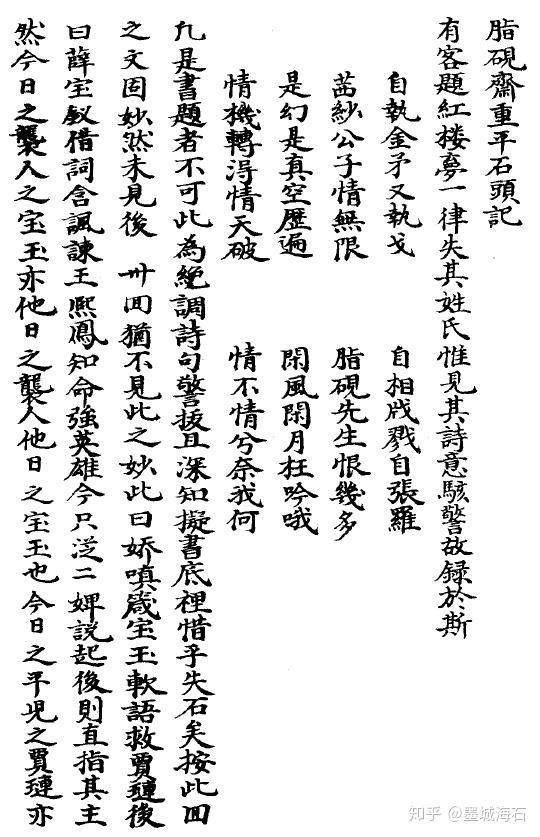 脂硯齋重平石頭記
有客題紅楼夢一律失其姓氏惟見其詩意駭警故録於斯
自執金矛又執戈　自相戕戮自張羅
茜紗公子情無限　脂硯先生恨幾多
是幻是真空歴遍　閑風閑月枉吟哦
情機轉淂情天破　情不情兮奈我何
凢是書題者不可此為絶調詩句警拔且深知擬書底裡惜乎失石矣按此回
之文固妙然未見後　卅回猶不見此之妙此曰娇嗔箴宝玉軟語救賈璉後
曰薛宝釵借詞含諷諫王熈鳳知命強英雄今只泛二婢説起後則直指其主
然今日之襲人之宝玉亦他日之襲人他日之宝玉也今日之平児之賈璉亦
知乎 @墨城海石